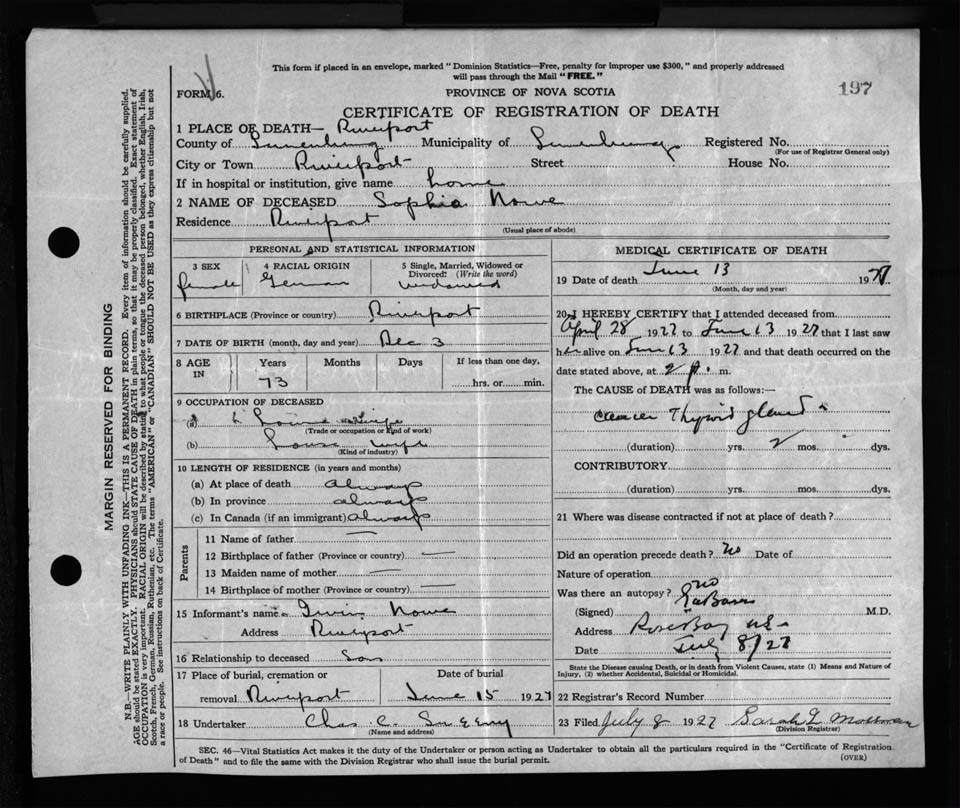 This form if placed in an envelope, marked " Dominion Statistics—Free, penalty for improper use $300, " and properly addressed
will pass through the Mail " FREE. "
FORM 6.
PROVINCE OF NOVA SCOTIA
197
CERTIFICATE OF REGISTRATION OF DEATH
1 PLACE OF DEATH— Riverport
County of Lunenburg Municipality of Lunenburg Registered No.
(For use of Registrar General only)
City or Town Riverport Street House No.
If in hospital or institution, give name home
2 NAME OF DECEASED Sophia Nowe
Residence Riverport
(Usual place of abode)
PERSONAL AND STATISTICAL INFORMATION
3 SEX 4 RACIAL ORIGIN 5 Single, Married, Widowed or
Divorced? (Write the word)
female German widowed
6 BIRTHPLACE (Province or country) Riverport
7 DATE OF BIRTH (month, day and year) Dec 3
8 AGE IN Years Months Days If less than one day,
73 hrs. or min.
9 OCCUPATION OF DECEASED
(a)
(Trade or occupation or kind of work)
(b) house wife
(Kind of industry)
10 LENGTH OF RESIDENCE (in years and months)
(a) At place of death always
(b) In province always
(c) In Canada (if an immigrant) always
Parents
11 Name of father —
12 Birthplace of father (Province or country) —
13 Maiden name of mother —
14 Birthplace of mother (Province or country) —
15 Informant's name Irvin Nowe
Address Riverport
16 Relationship to deceased Son
17 Place of burial, cremation or Date of burial
removal Riverport June 15 1927
18 Undertaker Chas C.
(Name and address)
MEDICAL CERTIFICATE OF DEATH
19 Date of death June 13 1927
(Month, day and year)
20 I HEREBY CERTIFY that I attended deceased from
April 28 1927 to June 13 1927 that I last saw
her alive on June 13 1927 and that death occurred on the
date stated above, at 2 p. m.
The CAUSE of DEATH was as follows:—
cancer Thyroid gland
(duration) yrs. 2 mos. dys.
CONTRIBUTORY
(duration) yrs. mos. dys.
21 Where was disease contracted if not at place of death?
Did an operation precede death? no Date of
Nature of operation
Was there an autopsy? no
(Signed) M.D.
Address Rose Bay N.S.
Date July 8/27
State the Disease causing Death, or in death from Violent Causes, state (1) Means and Nature of
Injury, (2) whether Accidental, Suicidal or Homicidal.
22 Registrar's Record Number
23 Filed July 8 1927 Sarah L Mossman
(Division Registrar)
SEC. 46—Vital Statistics Act makes it the duty of the Undertaker or person acting as Undertaker to obtain all the particulars required in the "Certificate of Registration
of Death" and to file the same with the Division Registrar who shall issue the burial permit.
(OVER)
MARGIN RESERVED FOR BINDING
N.B.—WRITE PLAINLY WITH UNFADING INK—THIS IS A PERMANENT RECORD. Every item of information should be carefully supplied.
AGE should be stated EXACTLY. PHYSICIANS should STATE CAUSE OF DEATH in plain terms, so that it may be properly classified. Exact statement of
OCCUPATION is very important. RACIAL ORIGIN will be described by stating to what people or tongue the deceased person belonged, whether English, Irish,
Scotch, French, German, Russian, Ruthenian, etc. The terms "AMERICAN" or "CANADIAN" SHOULD NOT BE USED as they express citizenship but not
a race or people. See instructions on back of Certificate.